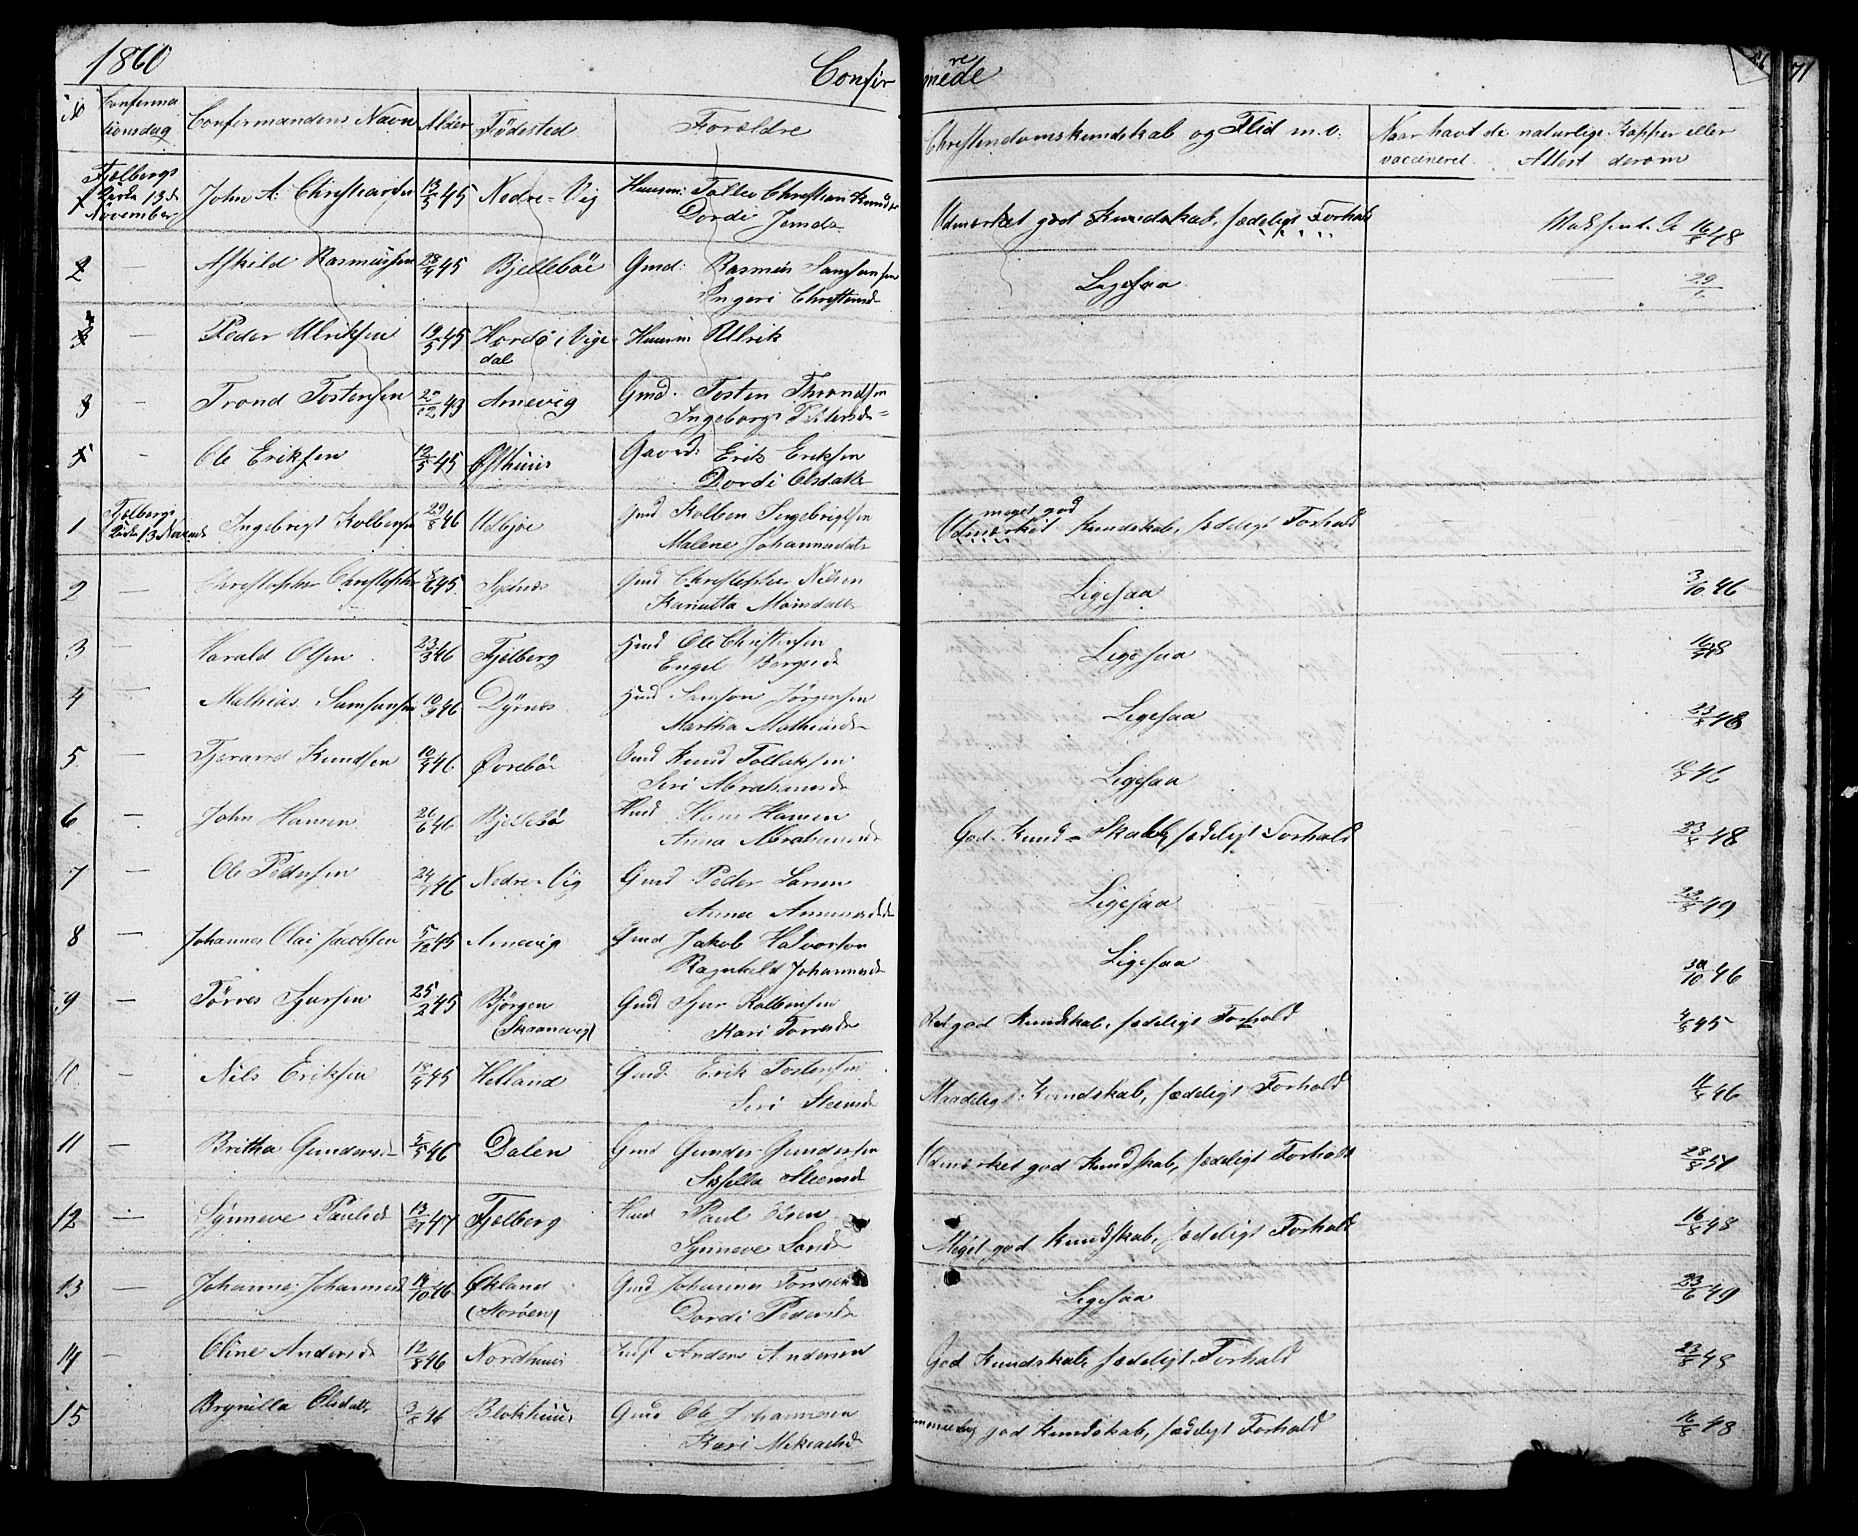 1860
Confirmerede
71
No Confirmationsdag Confirmandens Navn Alder Fødested Forældre Christendomskundskab og Flid m.v. Naar havt de naturlige Kopper eller vaccineret Attest derom
1 Fjelbergs Kirke 13de November John A. Christiansen 13/5 45 Nedre-Vig Huusm: Tollev Christian Knudsen
Dordi Jensdr Udmærket god Kundskab, sædeligt Forhold 16/8 48
2 — Askild Rasmussen 28/4 45 Bjellebøe Gmd: Rasmus Samsonsen
Ingeri Christensdr Ligesaa 29/6
4 — Peder Ulriksen 19/5 45 Hordø i Vigedal Huusm Ulrik
3 — Trond Tostensen 20/12 43 Arnevig Gmd. Tosten Throndsen
Ingeborg Petersdr
5 — Ole Eriksen 12/5 45 Østhuus Gaard: Erik Eriksen
Dordi Olsdatter
1 Fjelbergs Kirke 13 Novemb Ingebrigt Kolbensen 29/8 46 Udbjoe Gmd Kolben Ingebrigtsen
Malene Johannesdatr meget god Kundskab, sædeligt Forhold
2 — Christopher Christophersen 45 Sydnes Gmd Christopher Nilsen
Karin Monsdatter Ligesaa 3/10 46
3 — Harald Olsen 23/3 46 Fjelberg Hmd Ole Christensen
Engel Bergesdr Ligesaa 48
4 — Mathias Samsonsen 10/3 46 Dyrnes Hmd Samson Jørgensen
Martha Mathiasdr Ligesaa 48
5 — Tjerand Knudsen 10/4 46 Ørebø Gmd Knud Tollaksen
Siri Abrahamsdr Ligesaa 46
6 — John Hansen 26/6 46 Bjellebø Hmd Hans Hansen
Anna Abrahamsdr God Kund-Skab, sædeligt Forhold 48
7 — Ole Pedersen 24/7 46 Nedre-Vig Gmd Peder Larsen
Anna Ligesaa 49
8 — Johannes Olai Jacobsen 45 Arnevig Gmd Jakob Halvorson
Ragnhild Johannesdr Ligesaa 30/10 46
9 — Tørres Sjursen 25/2 45 Bjørgen (Skaanevig) Gmd Sjur Kolbensen
Kari Torresdr Ret god Kundskab, sædeligt Forhold 45
10 — Nils Eriksen 18/4 45 Hetland Gmd. Erik Tostensen
Siri Steensdr Maadeligt Kundskab, sædeligt Forhold 46
11 — Britha Gundersdr 5/5 46 Dalen Gmd Gunder Gundersen
Sisella Steensdr Udmærket god Kundskab, sædeligt Forhold 28/8 51
12 — Synneve Paulsdr 13/2 47 Fjelberg Hmd Paul Olsen
Synneve Larsdr Meget god Kundskab, sædeligt Forhold 16/8 48
13 — Johanne Johannesdr 14/10 46 Økland (Morøen) Gmd Johannes Torresen
Dordi Pedersdr Ligesaa 23/6 49
14 — Oline Andersdr 12/8 46 Nordhuus Anders Andersen God Kundskab, sædeligt Forhold 23/8 48
15 — Brynilla Olsdatter 3/8 46 Blokhuus Gmd Ole Johannesen
Kari Mikaelsdr god Kundskab, sædeligt Forhold 16/8 48